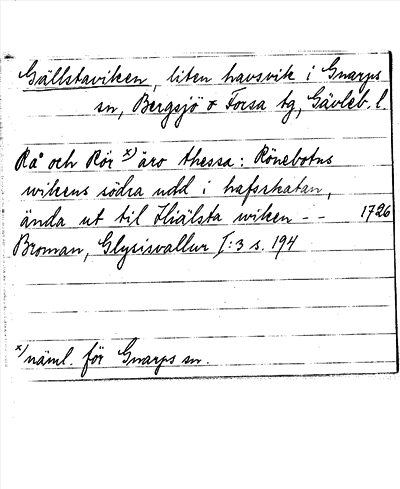 Gällstaviken, liten havsvik i Gnarps
sn, Bergsjö o Forsa tg, Gävleb. l.
Rå och Rör x) äro thessa: Rönebotns
wikens södra udd i hafsskatan,
ända ut til Hiälsta wiken - - 1726
Broman, Glysisvallur I:3 s. 194
x) näml. för Gnarps sn.